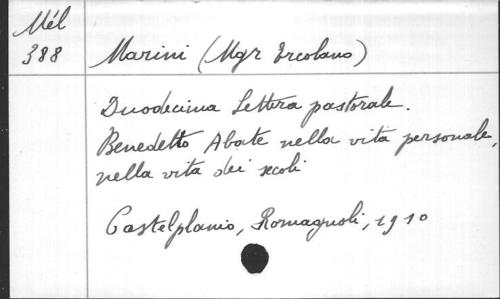 Mél
388
Marini (Mgr Ercolano)
Duodecima Lettera pastorale.
Benedetto Abate nella vita personale,
nella vita dei secoli
Castelplanio, Romagnoli, 1910